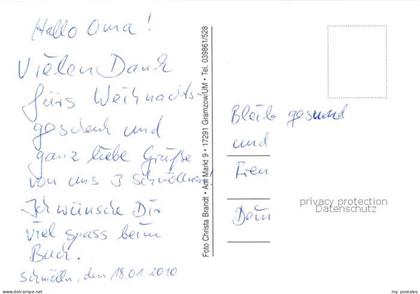 Hallo Oma!
Vielen Dank
fürs Weihnachts-
geschenk und
ganz liebe Grüße
von uns 3 Schmöllnern!
Ich wünsche Dir
viel spass beim
Buch.
Schmölln, den 18.01.2010
Foto Christa Brandt • Am Markt 9 • 17291 Gramzow/UM • Tel. 039861/528
Bleib gesund
und
privacy protection
Datenschutz
www.delcampe.net
my postales